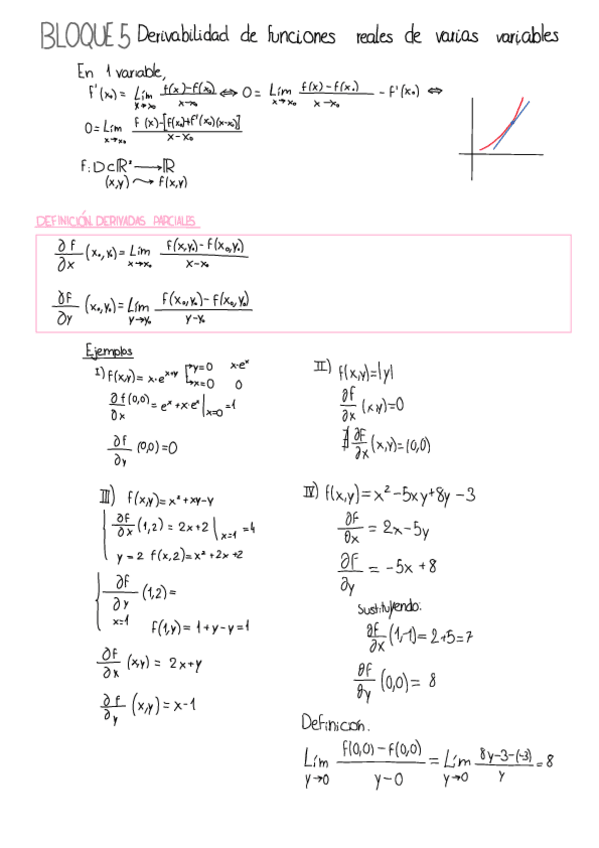 BLOQUE 5 Derivabilidad de funciones reales de varias variables
En 1 variable,
f'(x₀) = Lím x→x₀ (f(x)-f(x₀))/(x-x₀) ⇔ 0 = Lím x→x₀ (f(x)-f(x₀))/(x-x₀) - f'(x₀) ⇔
0 = Lím x→x₀ (f(x)-[f(x₀)+f'(x₀)(x-x₀)])/(x-x₀)
f: D⊂ℝ² → ℝ
(x,y) ⤳ f(x,y)
DEFINICIÓN. DERIVADAS PARCIALES
∂f/∂x (x₀,y₀) = Lím x→x₀ (f(x,y₀)-f(x₀,y₀))/(x-x₀)
∂f/∂y (x₀,y₀) = Lím y→y₀ (f(x₀,y₀)-f(x₀,y₀))/(y-y₀)
Ejemplos
I) f(x,y) = x·eˣ⁺ʸ y=0 x·eˣ
x=0 0
∂f/∂x (0,0) = eˣ+x·eˣ |x=0 = 1
∂f/∂y (0,0) = 0
II) f(x,y)=|y|
∂f/∂x (x,y)=0
∄ ∂f/∂x (x,y)=(0,0)
III) f(x,y) = x²+xy-y
∂f/∂x (1,2) = 2x+2 |x=1 = 4
y=2 f(x,2)=x²+2x+2
∂f/∂y (1,2)=
x=1
f(1,y) = 1+y-y=1
∂f/∂x (x,y) = 2x+y
∂f/∂y (x,y) = x-1
IV) f(x,y) = x²-5xy+8y-3
∂f/∂x = 2x-5y
∂f/∂y = -5x+8
Sustituyendo:
∂f/∂x (1,-1) = 2+5=7
∂f/∂y (0,0) = 8
Definición.
Lím y→0 (f(0,0)-f(0,0))/(y-0) = Lím y→0 (8y-3-(-3))/y = 8